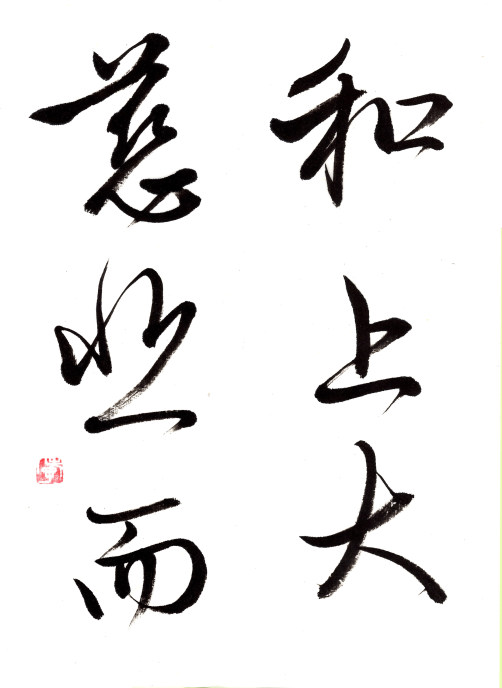 和上大
慈悲而